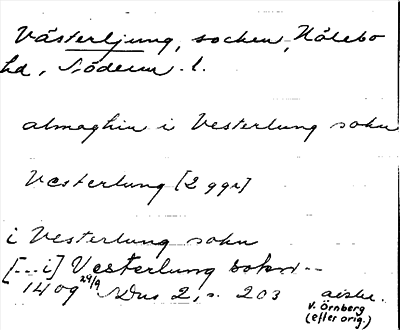 Västerljung, socken, Hölebo
hd, Söderm. l.
almaghin i Vesterlung sokn
Vesterlung [2 ggr]
i Vesterlung sokn
[---i] Vesterlung sokn --
1409 29/9 Dns 2, s. 203
V. Örnberg
(efter orig.)